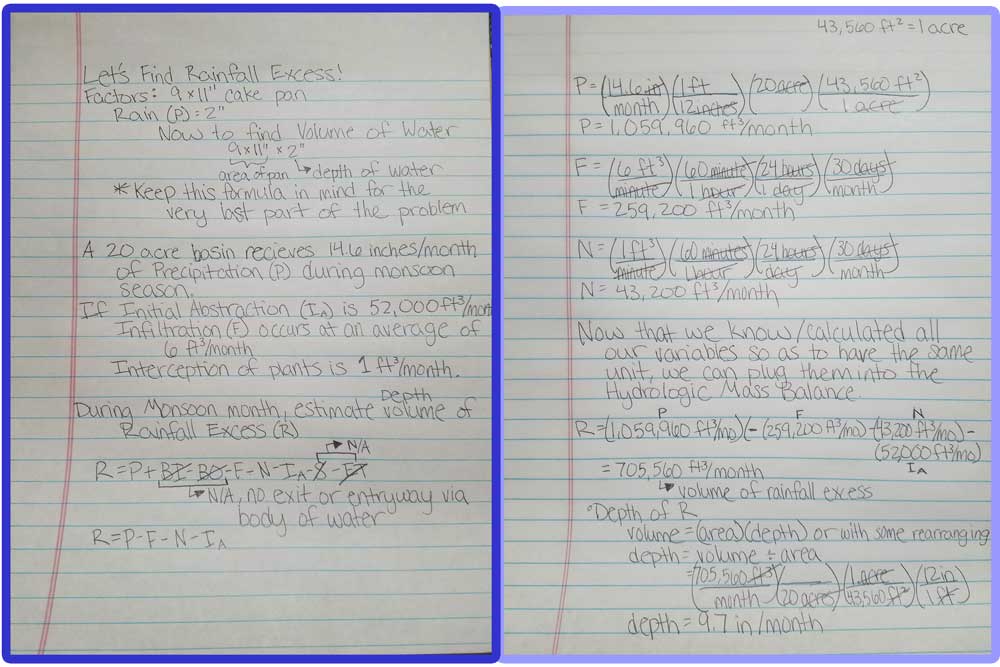 Let's Find Rainfall Excess!
Factors: 9 x 11" cake pan
Rain (P) = 2"
Now to find Volume of Water
9 x 11" x 2"
area of pan → depth of water
* Keep this formula in mind for the
very last part of the problem
A 20 acre basin recieves 14.6 inches/month
of Precipitation (P) during monsoon
season.
If Initial Abstraction (IA) is 52,000 ft³/mont
Infiltration (F) occurs at an average of
6 ft³/month
Interception of plants is 1 ft³/month.
Depth
During Monsoon month, estimate volume of
Rainfall Excess (R)
→ N/A
R = P + BI - BO - F - N - IA - S - ET
→ N/A, no exit or entryway via
body of water
R = P - F - N - IA
43,560 ft² = 1 acre
P = (14.6 in/month)(1 ft/12 inches)(20 acre)(43,560 ft²/1 acre)
P = 1,059,960 ft³/month
F = (6 ft³/minute)(60 minute/1 hour)(24 hours/1 day)(30 days/month)
F = 259,200 ft³/month
N = (1 ft³/minute)(60 minutes/1 hour)(24 hours/day)(30 days/month)
N = 43,200 ft³/month
Now that we know/calculated all
our variables so as to have the same
unit, we can plug them into the
Hydrologic Mass Balance.
P F N
R = (1,059,960 ft³/mo)(-(259,200 ft³/mo) - (43,200 ft³/mo) -
(52,000 ft³/mo)
IA
= 705,560 ft³/month
→ volume of rainfall excess
°Depth of R
volume = (area)(depth) or with some rearranging
depth = volume ÷ area
= (705,560 ft³/month)( /20 acres)(1 acre/43,560 ft²)(12 in/1 ft)
depth = 9.7 in/month